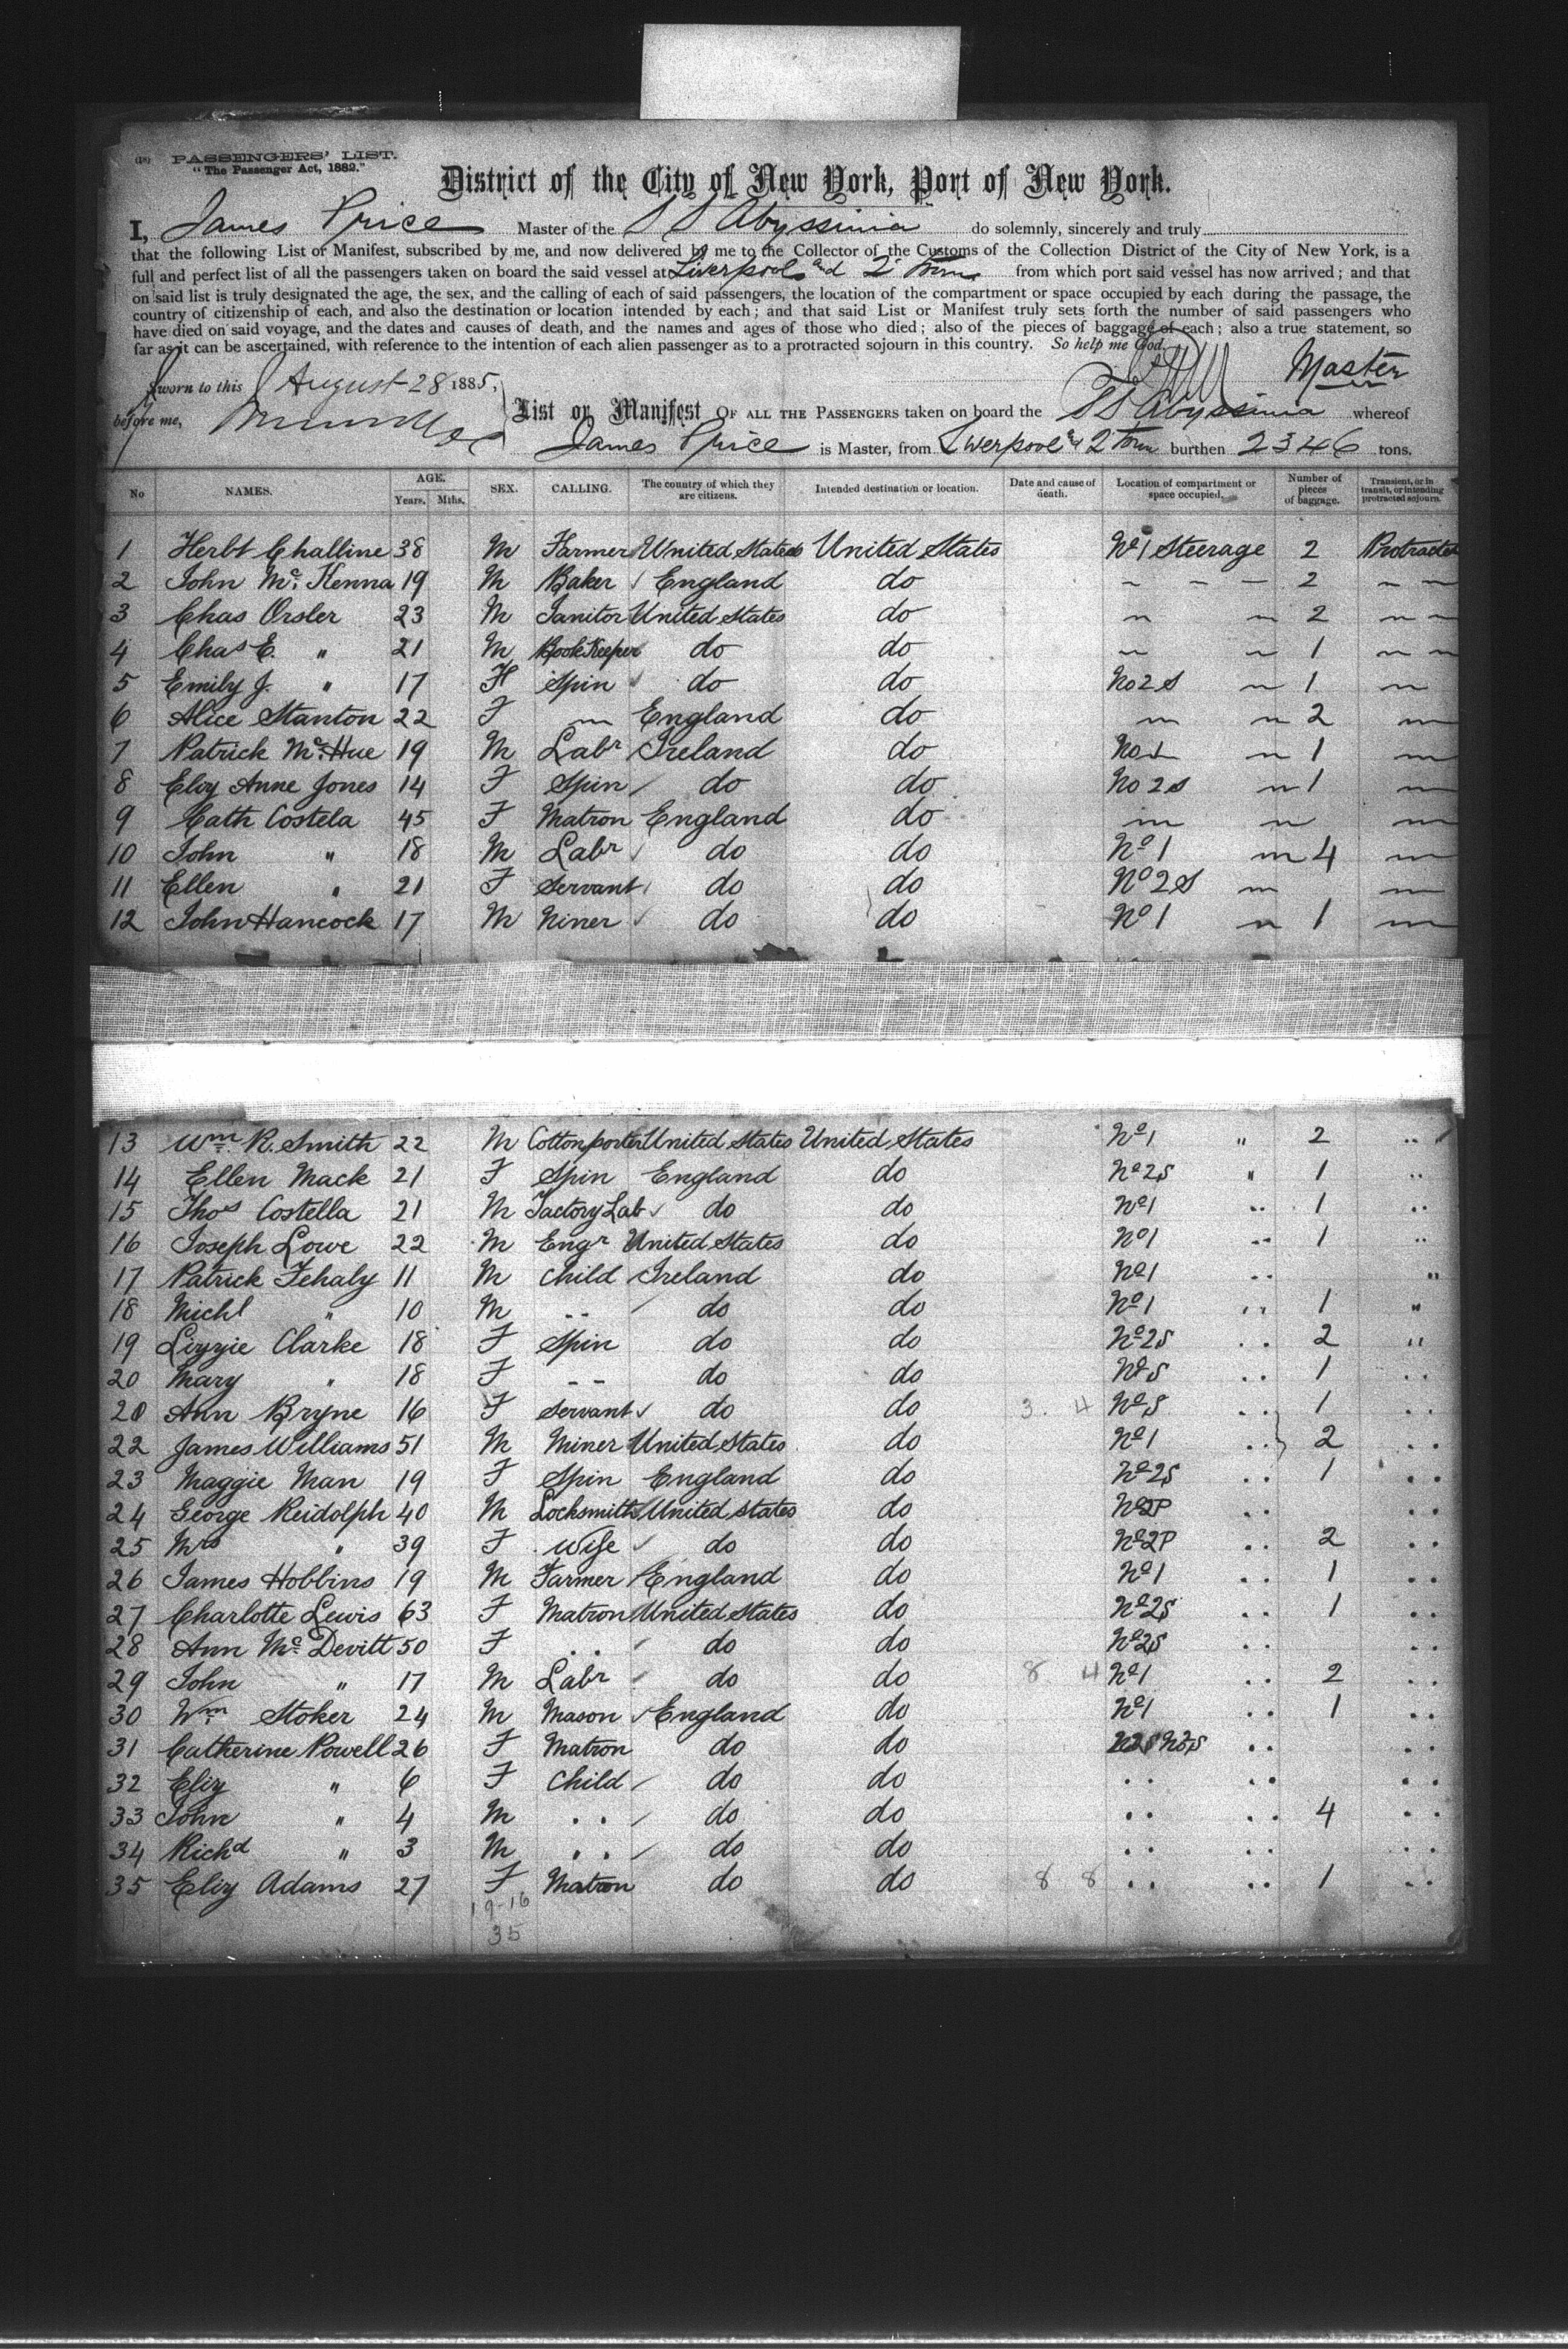 (18) PASSENGERS' LIST.
"The Passenger Act, 1882."
District of the City of New York, Port of New York.
I, James Price Master of the S S Abyssinia do solemnly, sincerely and truly
that the following List or Manifest, subscribed by me, and now delivered by me to the Collector of the Customs of the Collection District of the City of New York, is a
full and perfect list of all the passengers taken on board the said vessel at Liverpool and 2 Town from which port said vessel has now arrived; and that
on said list is truly designated the age, the sex, and the calling of each of said passengers, the location of the compartment or space occupied by each during the passage, the
country of citizenship of each, and also the destination or location intended by each; and that said List or Manifest truly sets forth the number of said passengers who
have died on said voyage, and the dates and causes of death, and the names and ages of those who died; also of the pieces of baggage of each; also a true statement, so
far as it can be ascertained, with reference to the intention of each alien passenger as to a protracted sojourn in this country. So help me God.
Master
Sworn to this August 28 1885,
before me,
List or Manifest OF ALL THE PASSENGERS taken on board the SS Abyssinia whereof
James Price is Master, from Liverpool & 2 Town burthen 2346 tons.
No NAMES. AGE. Years. Mths. SEX. CALLING. The country of which they are citizens. Intended destination or location. Date and cause of death. Location of compartment or space occupied. Number of pieces of baggage. Transient, or in transit, or intending protracted sojourn.
1 Herbt Challine 38 M Farmer United States United States No 1 Steerage 2 Protracted
2 John Mc Kenna 19 M Baker England do 2
3 Chas Orsler 23 M Janitor United States do " " 2
4 Chas E. " 21 M Book Keeper do do " " 1
5 Emily J. " 17 F Spin do do No 2 S " 1 "
6 Alice Stanton 22 F " England do " " 2 "
7 Patrick Mc Hue 19 M Labr Ireland do No 1 " 1 "
8 Elvy Anne Jones 14 F Spin do do No 2 S " 1 "
9 Cath Costela 45 F Matron England do " " "
10 John " 18 M Labr do do No 1 " 4 "
11 Ellen " 21 F Servant do do No 2 S " "
12 John Hancock 17 M Miner do do No 1 " 1 "
13 Wm. R. Smith 22 M Cotton porter United States United States No 1 " 2 "
14 Ellen Mack 21 F Spin England do No 2 S " 1 "
15 Thos Costella 21 M Factory Lab do do No 1 " 1 "
16 Joseph Lowe 22 M Engr United States do No 1 " 1 "
17 Patrick Fehaly 11 M Child Ireland do No 1 " "
18 Michl " 10 M " do do No 1 " 1 "
19 Lizzie Clarke 18 F Spin do do No 2 S " 2 "
20 Mary " 18 F " do do No S " 1 "
20 Ann Bryne 16 F Servant do do 3. 4 No S " 1 "
22 James Williams 51 M Miner United States do No 1 " 2 "
23 Maggie Man 19 F Spin England do No 2 S " 1 "
24 George Reidolph 40 M Locksmith United States do No 2 P "
25 Mrs " 39 F Wife do do No 2 P " 2 "
26 James Hobbins 19 M Farmer England do No 1 " 1 "
27 Charlotte Lewis 63 F Matron United States do No 2 S " 1 "
28 Ann Mc Devitt 50 F " do do No 2 S " "
29 John " 17 M Labr do do 8 4 No 1 " 2 "
30 Wm Stoker 24 M Mason England do No 1 " 1 "
31 Catherine Powell 26 F Matron do do No 2 S " "
32 Eliz " 6 F Child do do " " "
33 John " 4 M " do do " " 4 "
34 Richd " 3 M " do do " " "
35 Eliz Adams 27 F Matron do do 8 8 " " 1 "
19-16
35